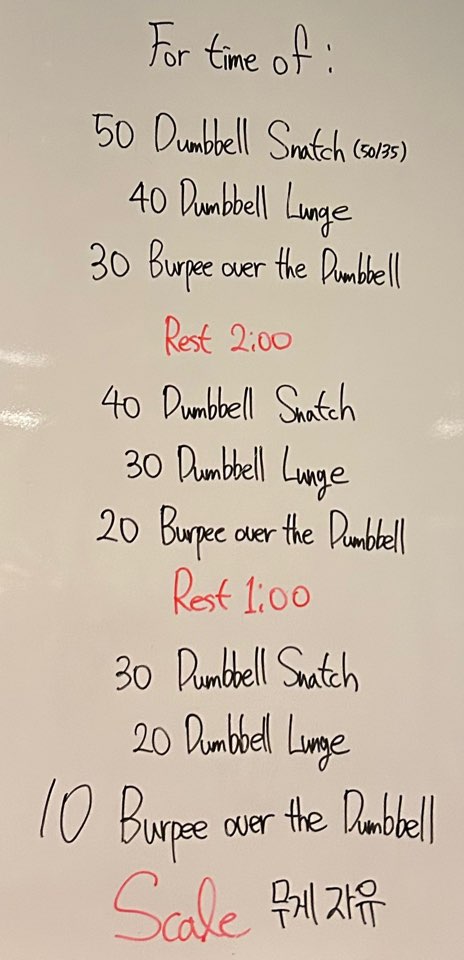 For time of :
50 Dumbbell Snatch (50/35)
40 Dumbbell Lunge
30 Burpee over the Dumbbell
Rest 2:00
40 Dumbbell Snatch
30 Dumbbell Lunge
20 Burpee over the Dumbbell
Rest 1:00
30 Dumbbell Snatch
20 Dumbbell Lunge
10 Burpee over the Dumbbell
Scale 무게 자유